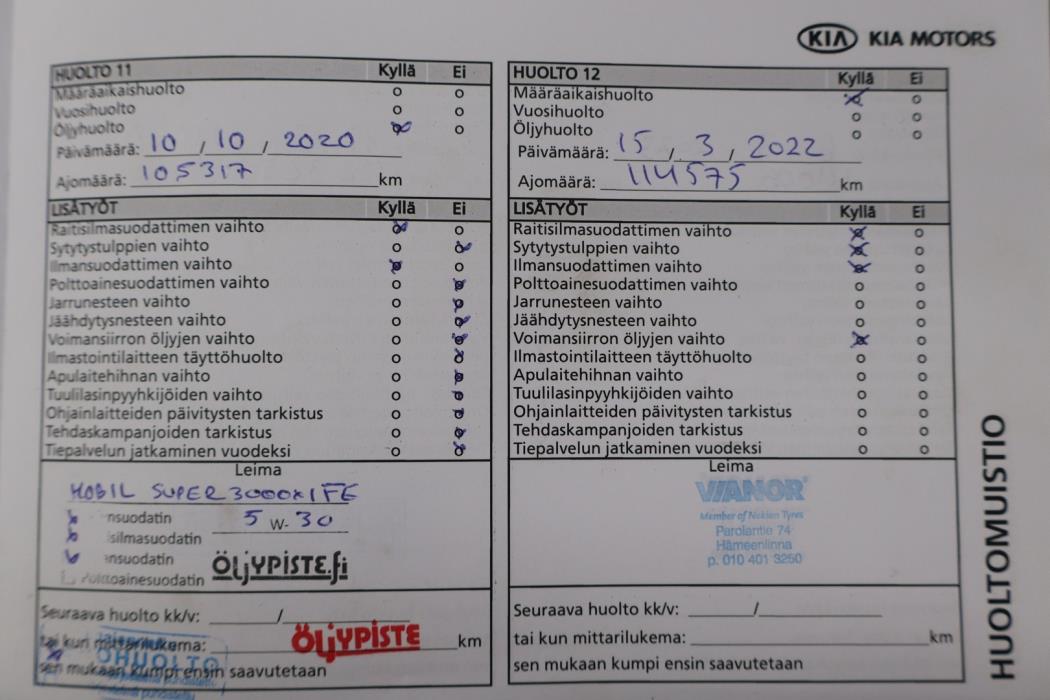 KIA KIA MOTORS
HUOLTO 11 Kyllä Ei
Määräaikaishuolto
Vuosihuolto
Öljyhuolto
Päivämäärä: 10 / 10 , 2020
Ajomäärä: 105317 km
LISÄTYÖT Kyllä Ei
Raitisilmasuodattimen vaihto
Sytytystulppien vaihto
Ilmansuodattimen vaihto
Polttoainesuodattimen vaihto
Jarrunesteen vaihto
Jäähdytysnesteen vaihto
Voimansiirron öljyjen vaihto
Ilmastointilaitteen täyttöhuolto
Apulaitehihnan vaihto
Tuulilasinpyyhkijöiden vaihto
Ohjainlaitteiden päivitysten tarkistus
Tehdaskampanjoiden tarkistus
Tiepalvelun jatkaminen vuodeksi
Leima
MOBIL SUPER 3000X1 FE
nsuodatin 5 W- 30
silmasuodatin
nsuodatin ÖLJYPISTE.fi
Polttoainesuodatin
Seuraava huolto kk/v: /
tai kun mittarilukema: ÖLJYPISTE km
sen mukaan kumpi ensin saavutetaan
HUOLTO 12 Kyllä Ei
Määräaikaishuolto
Vuosihuolto
Öljyhuolto
Päivämäärä: 15 / 3 , 2022
Ajomäärä: 114575 km
LISÄTYÖT Kyllä Ei
Raitisilmasuodattimen vaihto
Sytytystulppien vaihto
Ilmansuodattimen vaihto
Polttoainesuodattimen vaihto
Jarrunesteen vaihto
Jäähdytysnesteen vaihto
Voimansiirron öljyjen vaihto
Ilmastointilaitteen täyttöhuolto
Apulaitehihnan vaihto
Tuulilasinpyyhkijöiden vaihto
Ohjainlaitteiden päivitysten tarkistus
Tehdaskampanjoiden tarkistus
Tiepalvelun jatkaminen vuodeksi
Leima
VIANOR
Member of Nokian Tyres
Parolantie 74
Hämeenlinna
p. 010 401 3250
Seuraava huolto kk/v: /
tai kun mittarilukema: km
sen mukaan kumpi ensin saavutetaan
HUOLTOMUISTIO